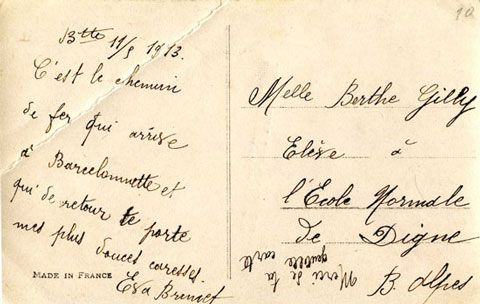 Btte 11/5 1913.
C'est le chemin
de fer qui arrive
à Barcelonnette et
qui de retour te porte
mes plus douces caresses.
Eva
MADE IN FRANCE
Melle Berthe Gilly
Elève à
l'École Normale
de Digne
B. Alpes
Merci de ta
gentille carte
10